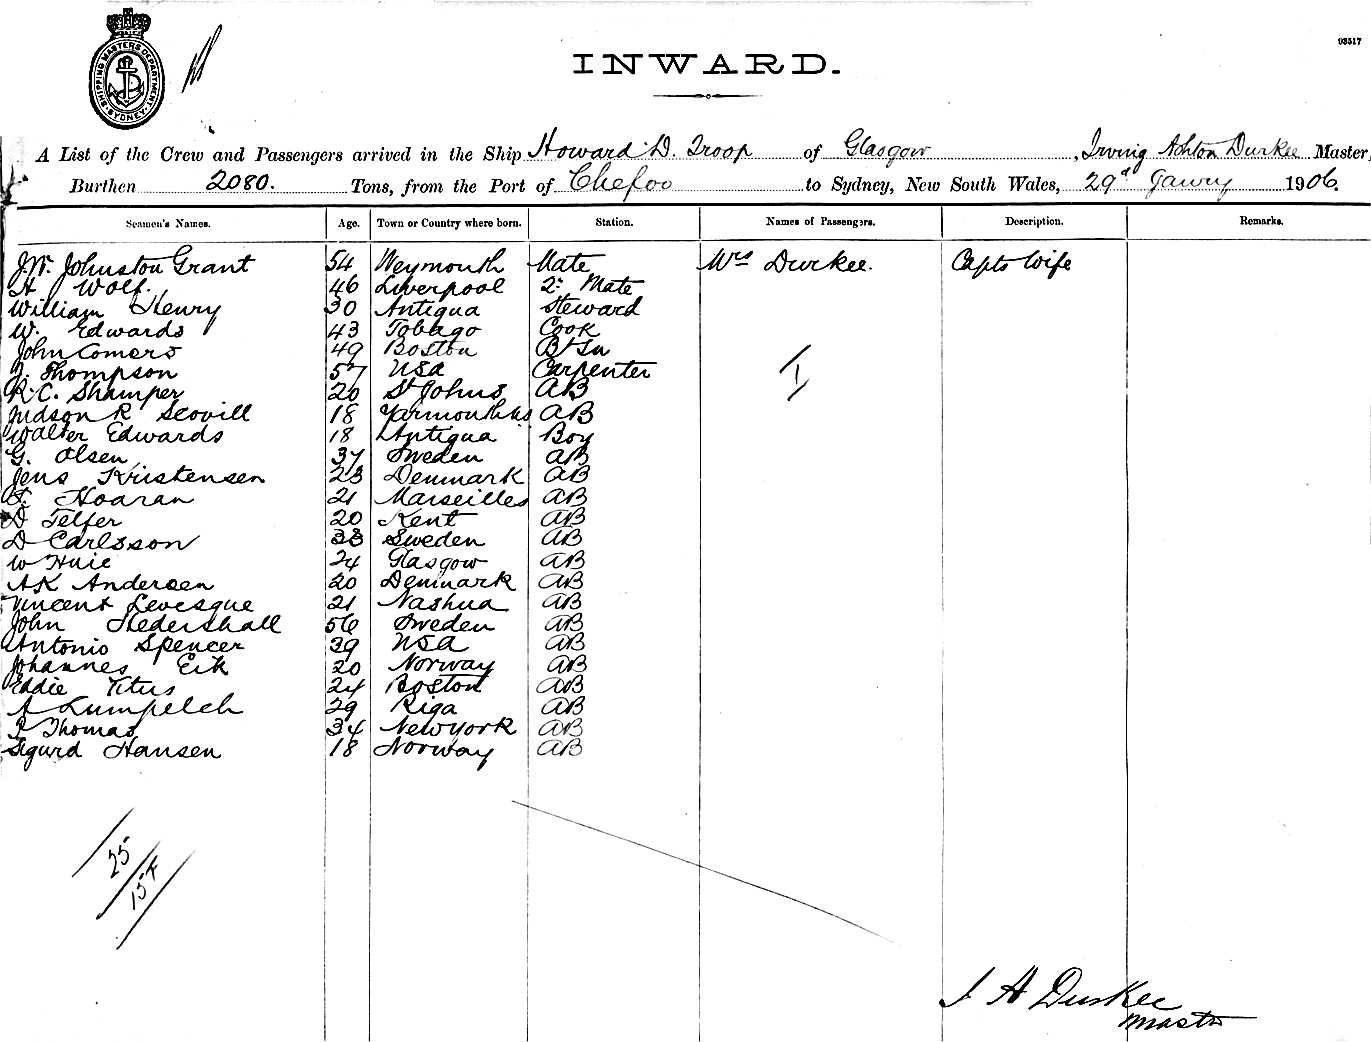 SHIPPING MASTERS DEPARTMENT SYDNEY
93517
INWARD.
A List of the Crew and Passengers arrived in the Ship Howard D. Troop of Glasgow, Irving Ashton Durkee Master,
Burthen 2080. Tons, from the Port of Chefoo to Sydney, New South Wales, 29th Janry 1906.
Seamen's Names. Age. Town or Country where born. Station. Names of Passengers. Description. Remarks.
J.W. Johnston Grant 54 Weymouth Mate Mrs Durkee. Capts Wife
H Wolf. 46 Liverpool 2: Mate
William Henry 30 Antigua Steward
W. Edwards 43 Tobago Cook
John Comers 49 Boston B'Sn
Thompson 57 USA Carpenter
R.C. Shamper 20 St Johns AB
Judson R Scovill 18 Yarmouth NS AB
Walter Edwards 18 Antigua Boy
G. Olsen 37 Sweden AB
Jens Kristensen 23 Denmark AB
Hoaran 21 Marseilles AB
D Telfer 20 Kent AB
D Carlsson 33 Sweden AB
W Huie 24 Glasgow AB
AK Andersen 20 Denmark AB
Vincent Levesque 21 Nashua AB
John Hedershall 56 Sweden AB
Antonio Spencer 39 USA AB
Johannes Eik 20 Norway AB
Eddie Titus 24 Boston AB
A Lumpelch 29 Riga AB
P Thomas 34 New York AB
Sigurd Hansen 18 Norway AB
I
25
15 F
I A Durkee
Master